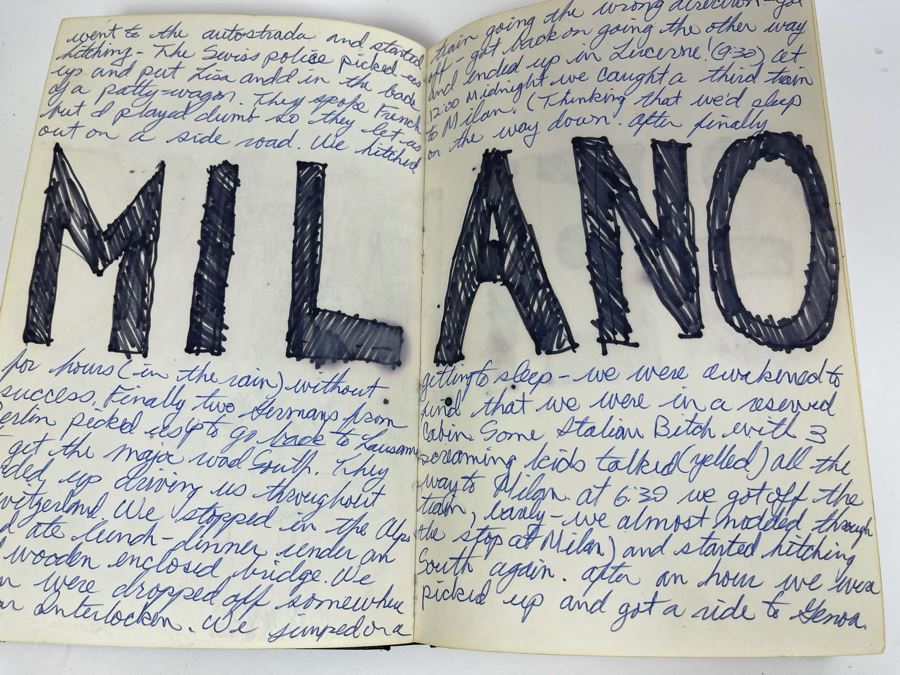 went to the autostrada and started
hitching - The Swiss police picked us
up and put Lisa and I in the back
of a patty-wagon. They spoke French
but I played dumb so they let us
out on a side road. We hitched
MIL
for hours (in the rain) without
success. Finally two Germans from
erlin picked us up to go back to Lausan
get the major road South. They
ded up driving us throughout
witzerland We stopped in the Alps
d ate lunch-dinner under an
wooden enclosed bridge. We
were dropped off somewhere
Interlocken. We jumped on a
train going the wrong direction - got
off - got back on going the other way
and ended up in Lucerne! (9:30) at
12:00 Midnight we caught a third train
to Milan. (Thinking that we'd sleep
on the way down. After finally
ANO
getting to sleep - we were awakened to
find that we were in a reserved
Cabin. Some Italian Bitch with 3
screaming kids talked (yelled) all the
way to Milan. at 6:30 we got off the
train, barely - we almost nodded through
the stop at Milan) and started hitching
South again. After an hour we were
picked up and got a ride to Genoa.